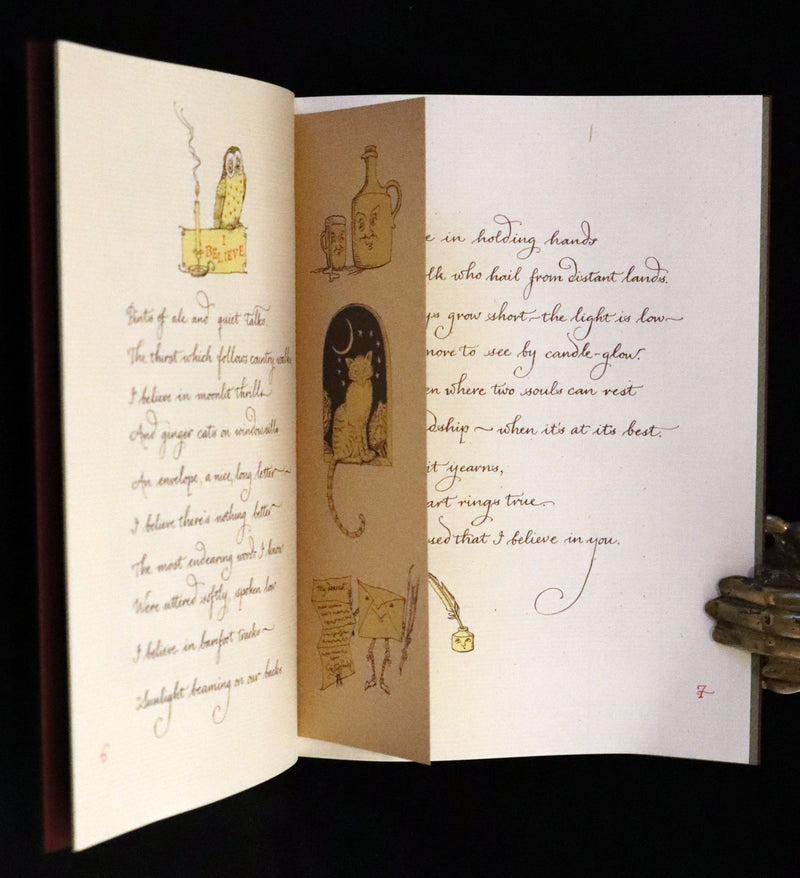 I
BELIEVE
Pints of ale and quiet talks.
The thirst which follows country walks
I believe in moonlit thrills
And ginger cats on windowsills
An envelope, a nice, long letter~
I believe there's nothing better
The most endearing words I know
Were uttered softly, spoken low
I believe in barefoot tracks~
Sunlight beaming on our backs
6
My dearest
e in holding hands
lk who hail from distant lands.
ys grow short~the light is low~
more to see by candle-glow.
en where two souls can rest
dship ~ when it's at its best.
it yearns,
art rings true.
sed that I believe in you.
7